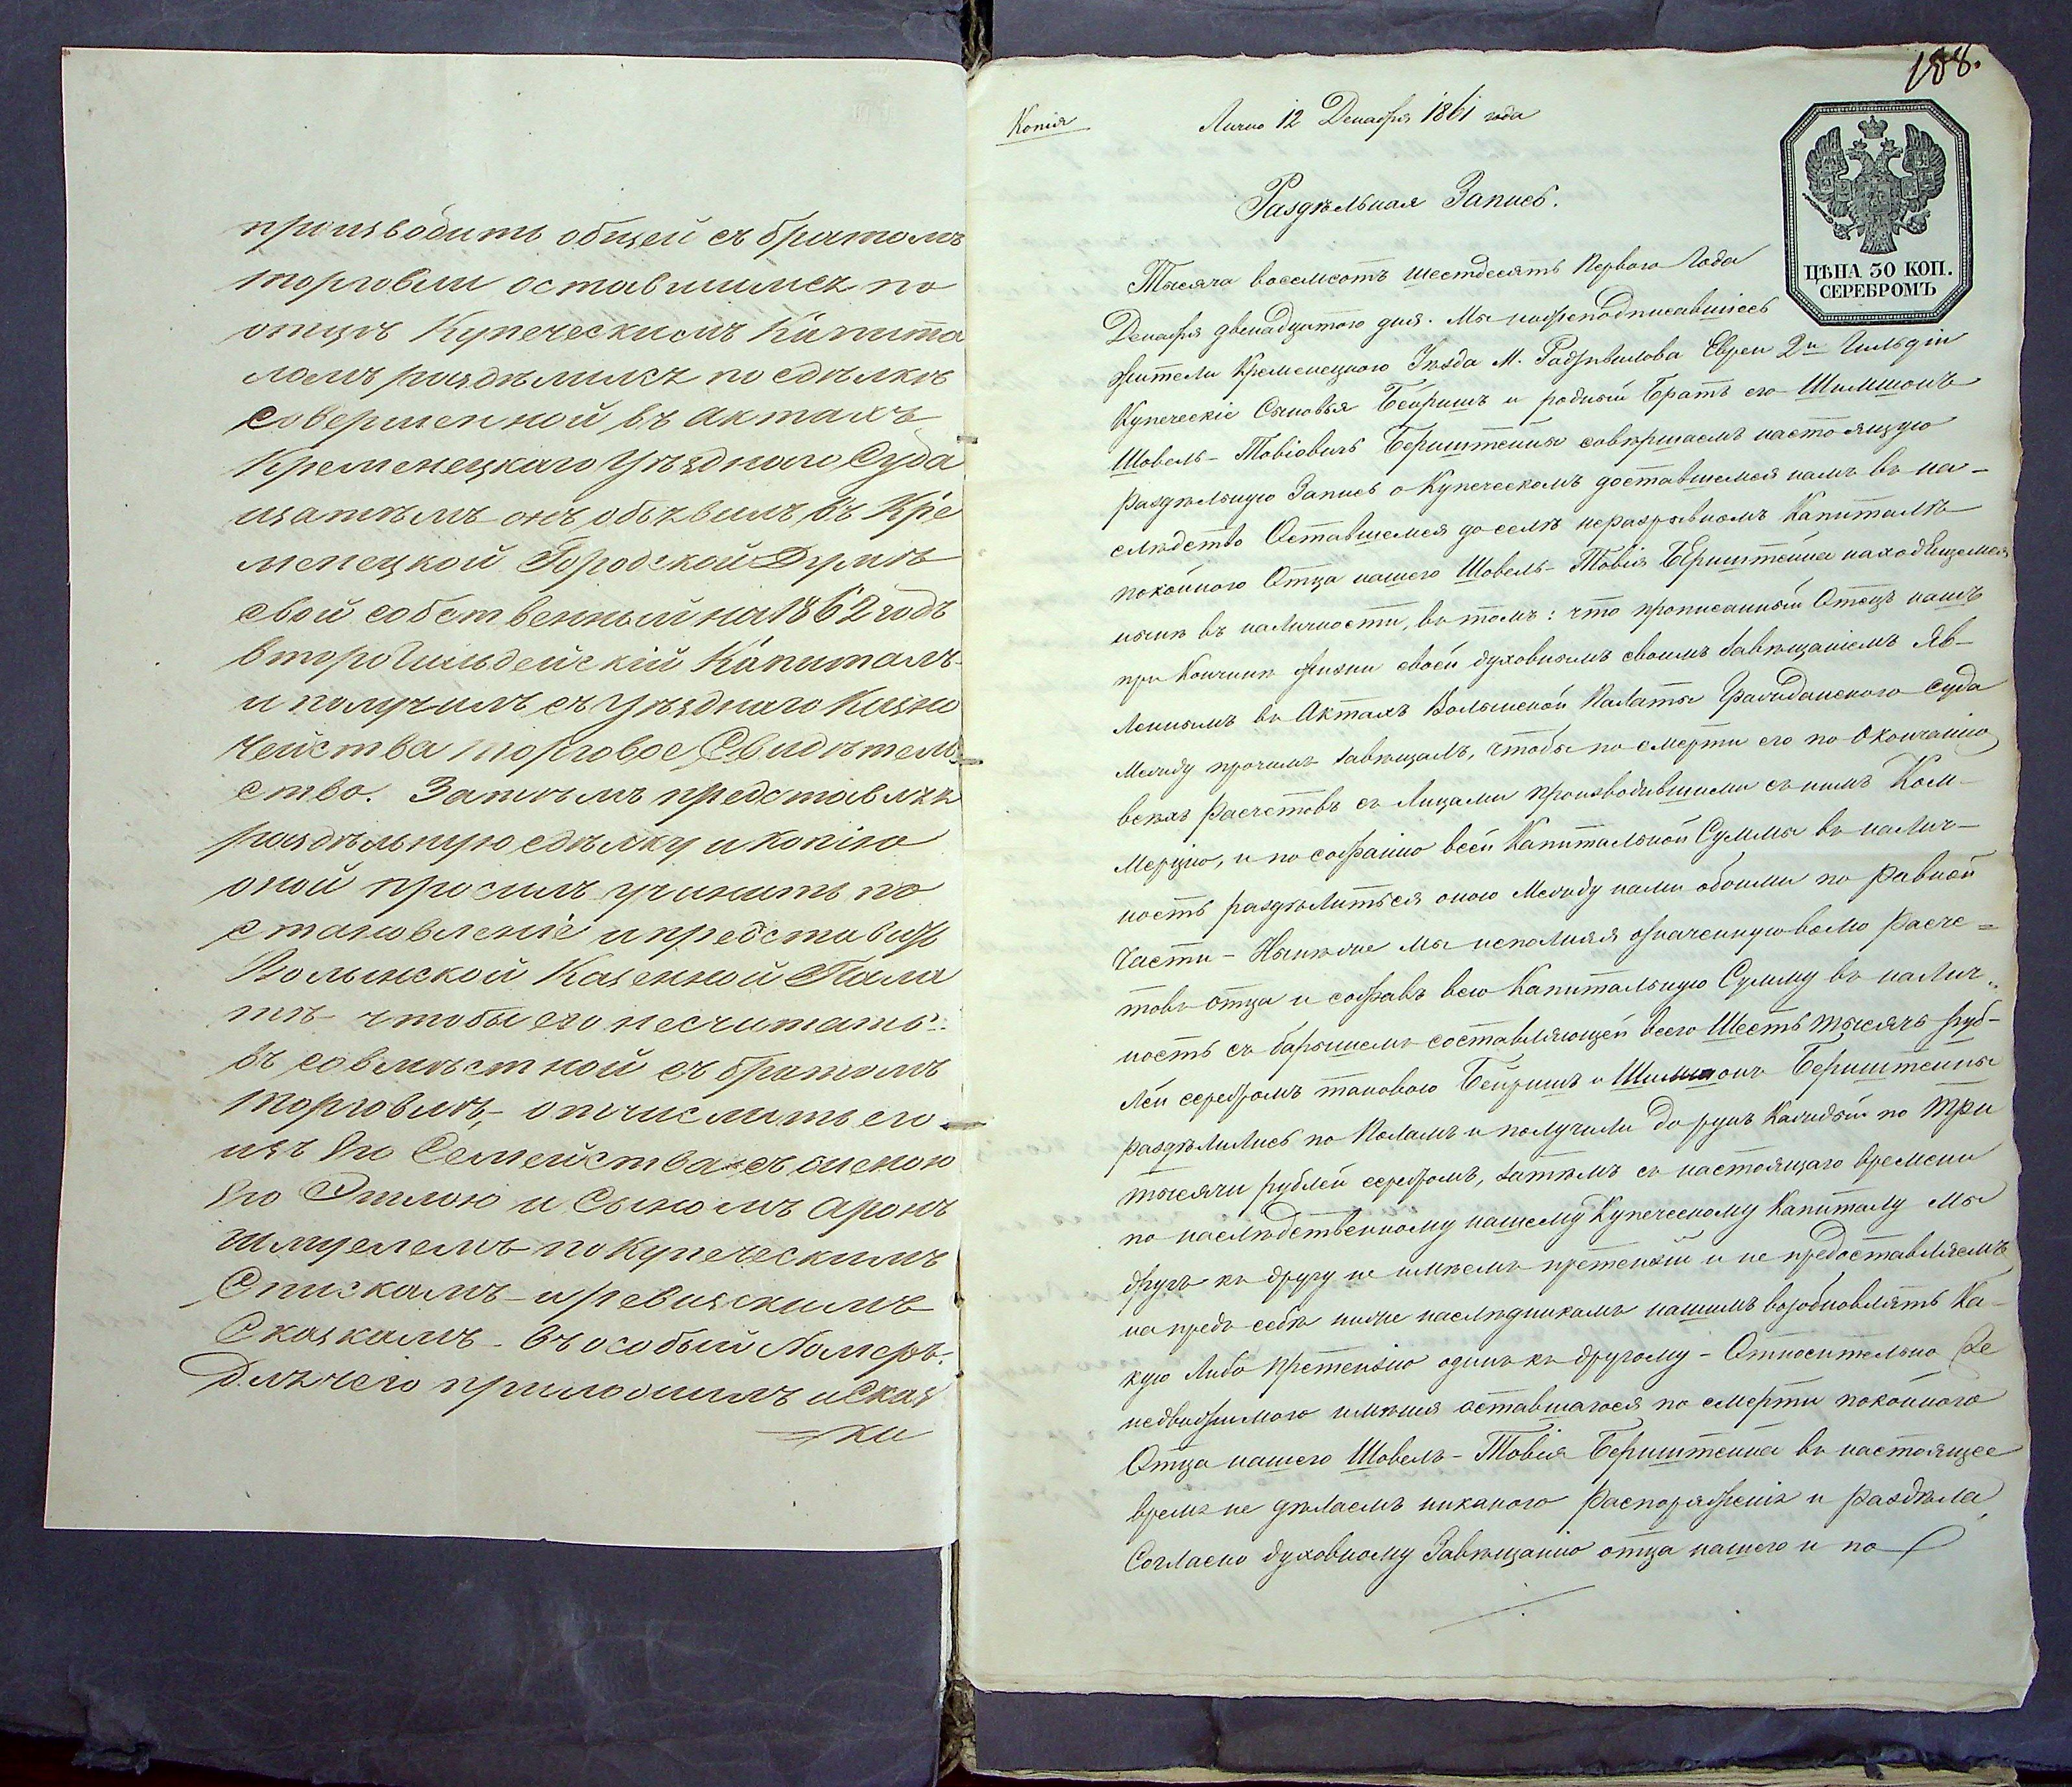 производить общей съ братомъ
торговли оставшимся по
отцѣ Купеческимъ Капита
ломъ раздѣлился по сдѣлкѣ
совершенной въ актахъ
Кременецкаго Уѣзднаго Суда
изатѣмъ онъ объявилъ въ Кре
менецкой Городской Думѣ
свой собственный на 1862 годъ
второгильдейскій Капиталъ
и получилъ съ Уѣзднаго Казна
чейства торговое Свидѣтель
ство. Затѣмъ представляя
раздѣльную сдѣлку и копію
оной просилъ учинить по
становленіе и представить
Волынской Казенной Пала
тѣ чтобы его несчитать
въ совмѣстной съ братомъ
торговлѣ, отчислить его
изъ Его Семейства съ женою
Его Этлею и Сыномъ Аронъ
Шмулемъ по Купеческимъ
Спискамъ и ревизскимъ
Сказкамъ въ особый Номеръ.
Для чего приложилъ и Сказ
ки
188.
Копія
Явлено 12 Декабря 1861 года
Раздѣльная Запись.
ЦѢНА 30 КОП.
СЕРЕБРОМЪ
Тысяча восемсотъ шестдесятъ Перваго Года
Декабря двенадцатаго дня. Мы нижеподписавшіесь
жители Кременецкаго Уѣзда М. Радзивилова Евреи 2й Гильдіи
Купеческіе Сыновья Бейришъ и родный Братъ его Шимшонъ
Шовель-Товіовичъ Беринштейны совершаемъ настоящую
раздѣльную Запись о Купеческомъ доставшемся намъ въ на-
слѣдство Оставшемся до селѣ неразрывномъ Капиталѣ
покойнаго Отца нашего Шовель-Товія Беринштейна находящемся
нынѣ въ наличности, въ томъ: что прописанный Отецъ нашъ
при Кончинѣ жизни своей духовнымъ своимъ завѣщаніемъ яв-
леннымъ въ Актахъ Волынской Палаты Гражданскаго Суда
Между прочимъ завѣщалъ, чтобы по смерти его по Окончанію
всѣхъ расчетовъ съ Лицами производившими съ нимъ Ком-
мерцію, и по собранію всей Капитальной Суммы въ налич-
ность раздѣлиться оною Между нами обоими по равной
Части - Нынѣже мы исполняя означенную волю расче=
товъ отца и собравъ всю Капитальную Сумму въ налич-
ность съ барышемъ составляющей всего Шесть тысячъ руб-
лей серебромъ таковою Бейришъ и Шимшонъ Беринштейны
раздѣлились по Поламъ и получили до рукъ Каждый по три
тысячи рублей серебромъ, затѣмъ съ настоящаго времени
по наслѣдственному нашему Купеческому Капиталу мы
другъ къ другу не имѣемъ претензій и не предоставляемъ
на предъ себѣ ниже наслѣдникамъ нашимъ возобновлять Ка-
кую Либо претензію одинъ къ другому - Относительно же
недвижимаго имѣнія оставшагося по смерти покойнаго
Отца нашего Шовель-Товія Беринштейна въ настоящее
время не дѣлаемъ никакого распоряженія и раздѣла,
Согласно духовному Завѣщанію отца нашего и по